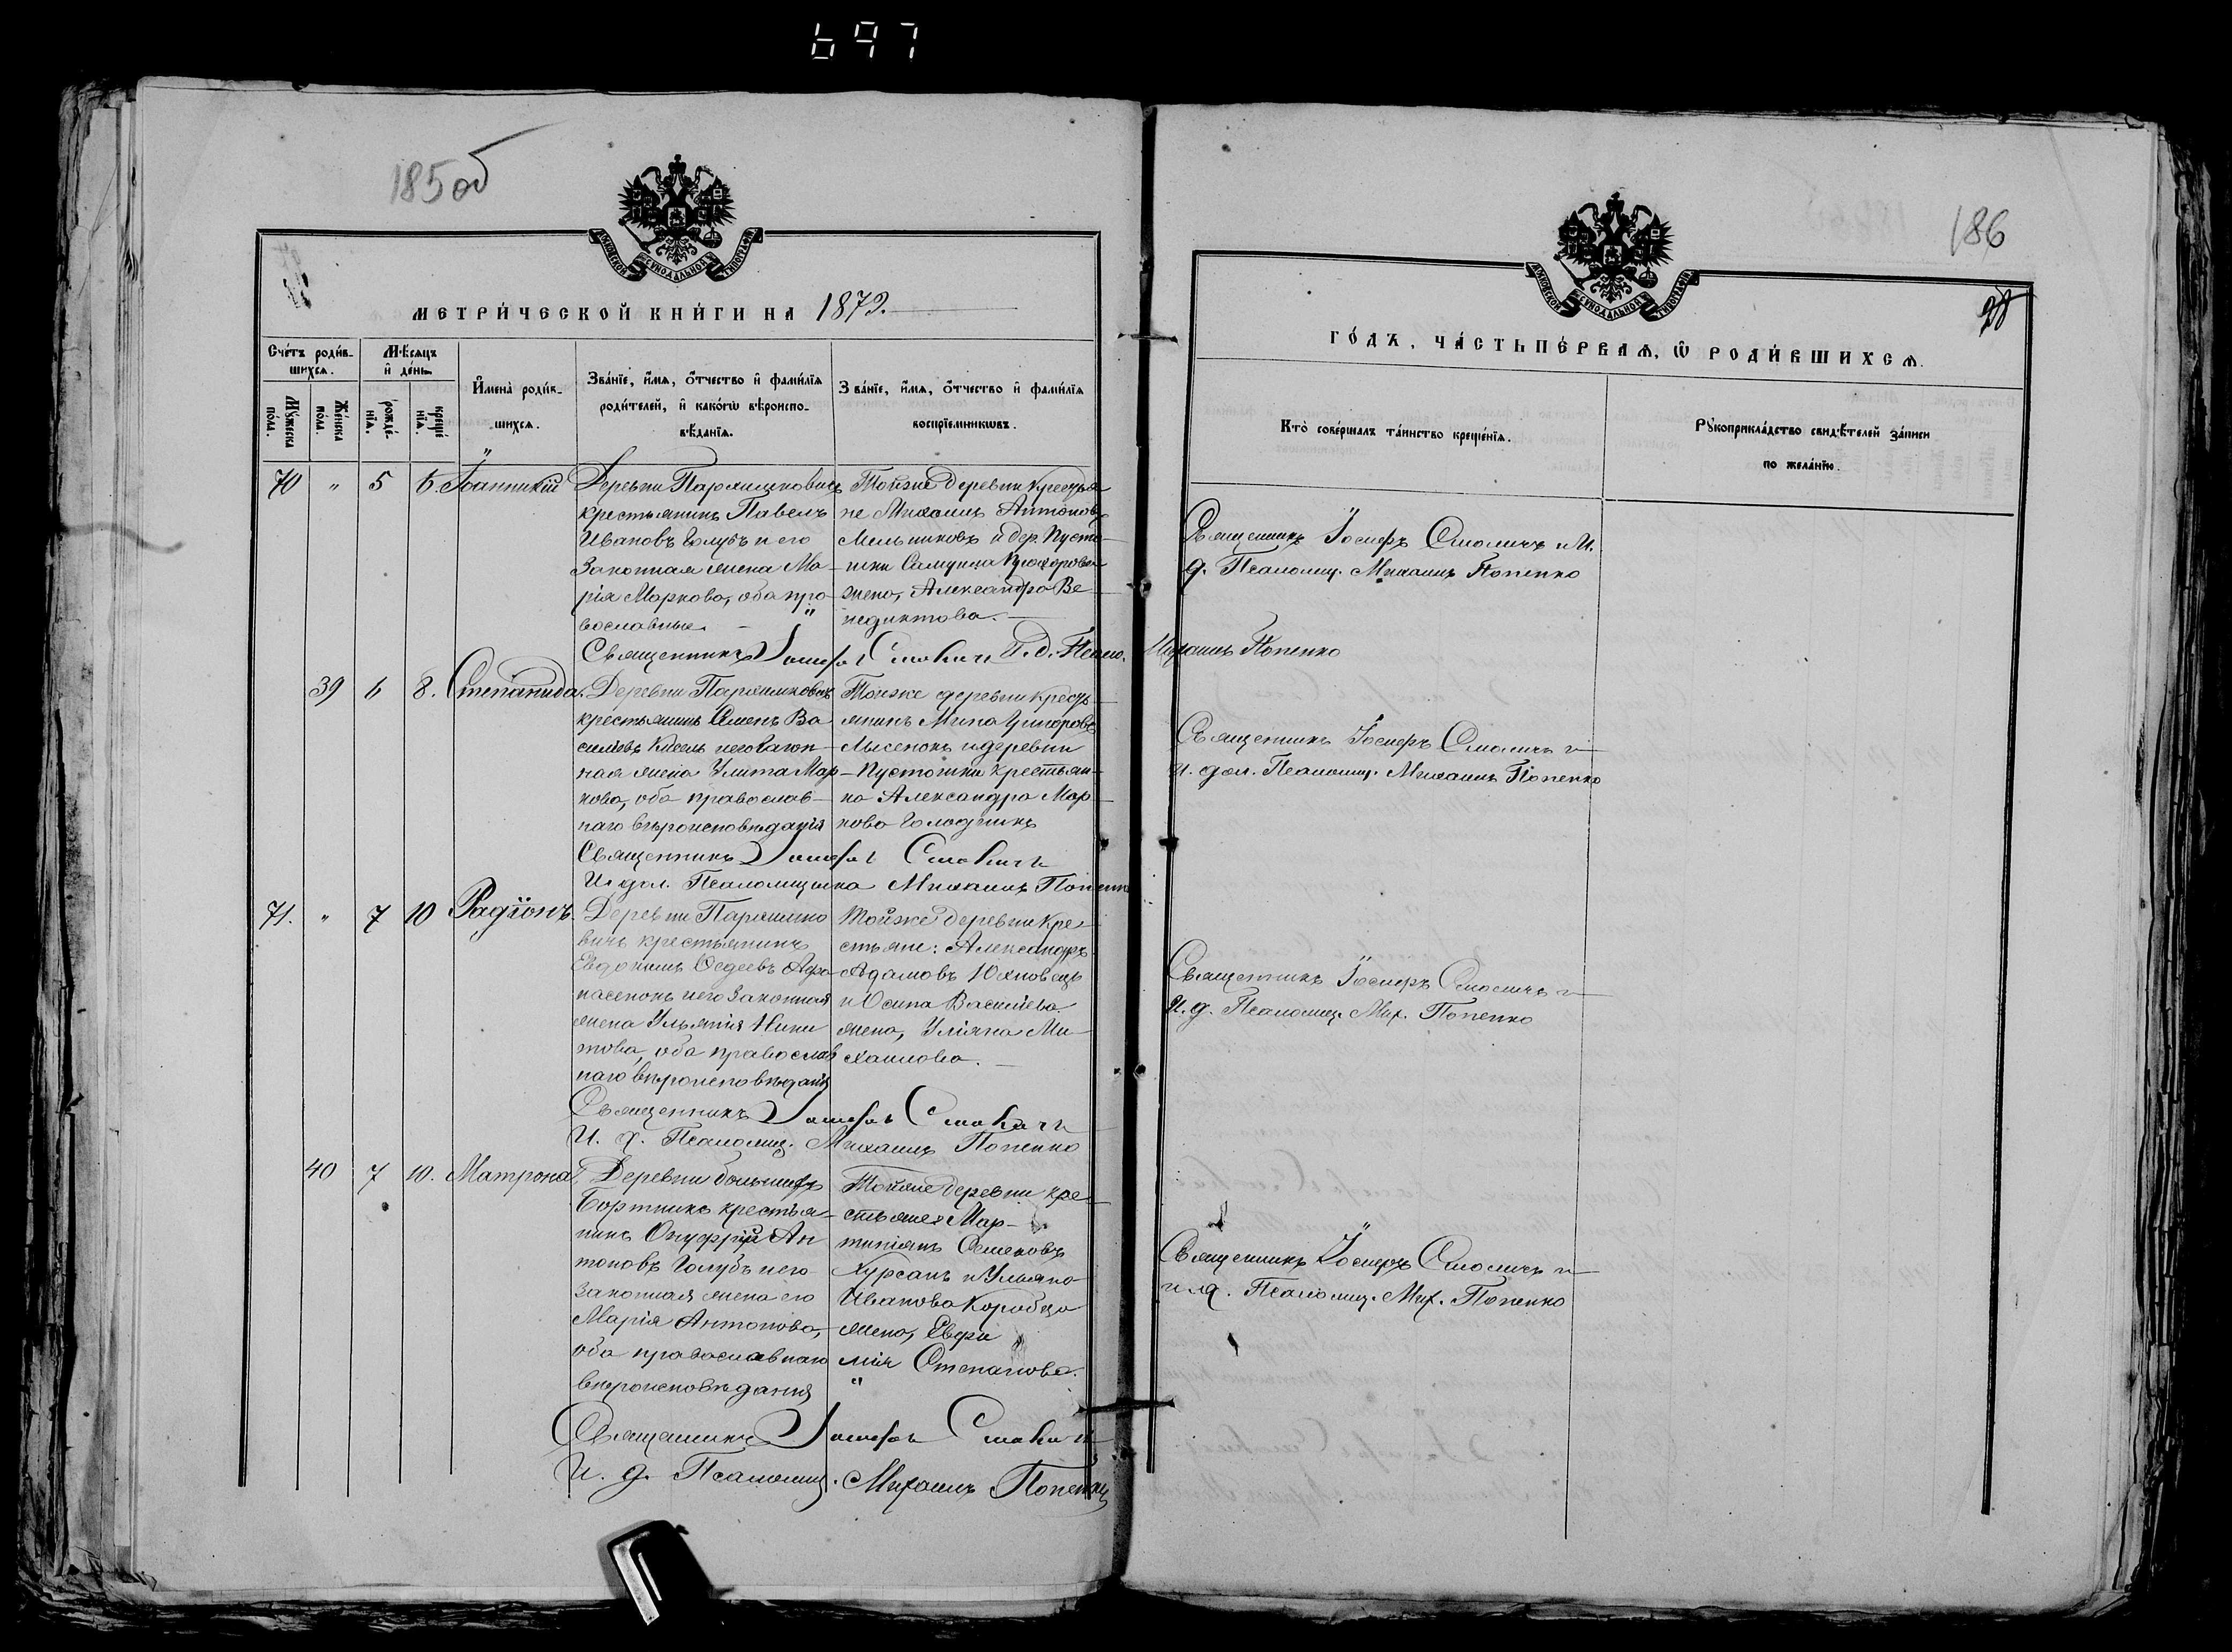 697
185об
МЕТРИ́ЧЕСКОЙ КНИ́ГИ НА 1879.
Сче́тъ роди́в-
шихсѧ.
Мѣ́сѧцъ
и҆ де́нь.
Мꙋ́жеска
по́ла.
Же́нска
по́ла.
рожде́-
нїѧ.
креще́
нїѧ.
И҆мена̀ роди́в-
шихсѧ.
Зва́нїе, и҆́мѧ, ѻ҆́тчество и҆ фами́лїѧ
роди́телей, и҆ како́гѡ вѣроиспо-
вѣ́данїѧ.
Зва́нїе, и҆́мѧ, ѻ҆́тчество и҆ фами́лїѧ
воспрїе́мникѡвъ.
70 " 5 6. Іоанникій
Деревни Парѣимковичъ
крестьянинъ Павелъ
Ивановъ Голубъ и его
Законная жена Ма-
рія Маркова, оба пра-
вославные.
Тойже деревни крестья-
не Михаилъ Антоновъ
Мельниковъ и дер. Пусто-
шки
жена, Александра Ве-
недиктова.
Священникъ Іосифъ Смоличъ И.д. Псало. Михаилъ Попенко
39 6 8. Степанида.
Деревни
крестьянинъ Семенъ Ва
сильевъ Кисель и его закон-
ная жена Улита Мар-
кова, оба православ-
наго вѣроисповѣданія
Тойже деревни кресть-
янинъ Мина Григоровъ
Лысенокъ и деревни
Пустошки крестьян-
ка Александра Мар-
кова
Священникъ Іосифъ Смоличъ
И. дол. Псаломщика Михаилъ Попенко
71. " 7 10 Радіонъ.
Деревни
вичъ крестьянинъ
Евдокимъ Авдеевъ Афа-
насенокъ и его Законная
жена Ульянія Ники
това, оба православ
наго вѣроисповѣданія
Тойже деревни Кре-
стьяне: Александръ
Адамовъ Юхновецъ
и Осипа Васильева
жена, Уліяна Ми-
хаилова.
Священникъ Іосифъ Смоличъ
И. д. Псаломщ. Михаилъ Попенко
40 7 10. Матрона.
Деревни большихъ
Бортникъ крестья-
нинъ Онуфрій Ан
тоновъ Голубъ и его
Законная жена его
Марія Антонова,
оба православнаго
вѣроисповѣданія
Тойже деревни кре-
стьяне Мар-
тиніянъ Семеновъ
Хурсанъ и Ульяна
Иванова Коробца
жена, Евфи
мія Степанова.
Священникъ Іосифъ Смоличъ
И. д. Псаломщ. Михаилъ Попенко
186
28
ГО́ДЪ, ЧА́СТЬ ПЕ́РВАѦ, Ѡ҆ РОДИ́ВШИХСѦ.
Кто̀ соверша́лъ та́инство креще́нїѧ.
Рꙋкоприкла́дство свидѣ́телей за́писи
по жела́нїю.
Священникъ Іосифъ Смоличъ и И.
д. Псаломщ. Михаилъ Попенко
Священникъ Іосифъ Смоличъ и
И. дол. Псаломщ. Михаилъ Попенко
Священникъ Іосифъ Смоличъ и
И.д. Псаломщ. Мих. Попенко
Священникъ Іосифъ Смоличъ и
и.д. Псаломщ. Мих. Попенко